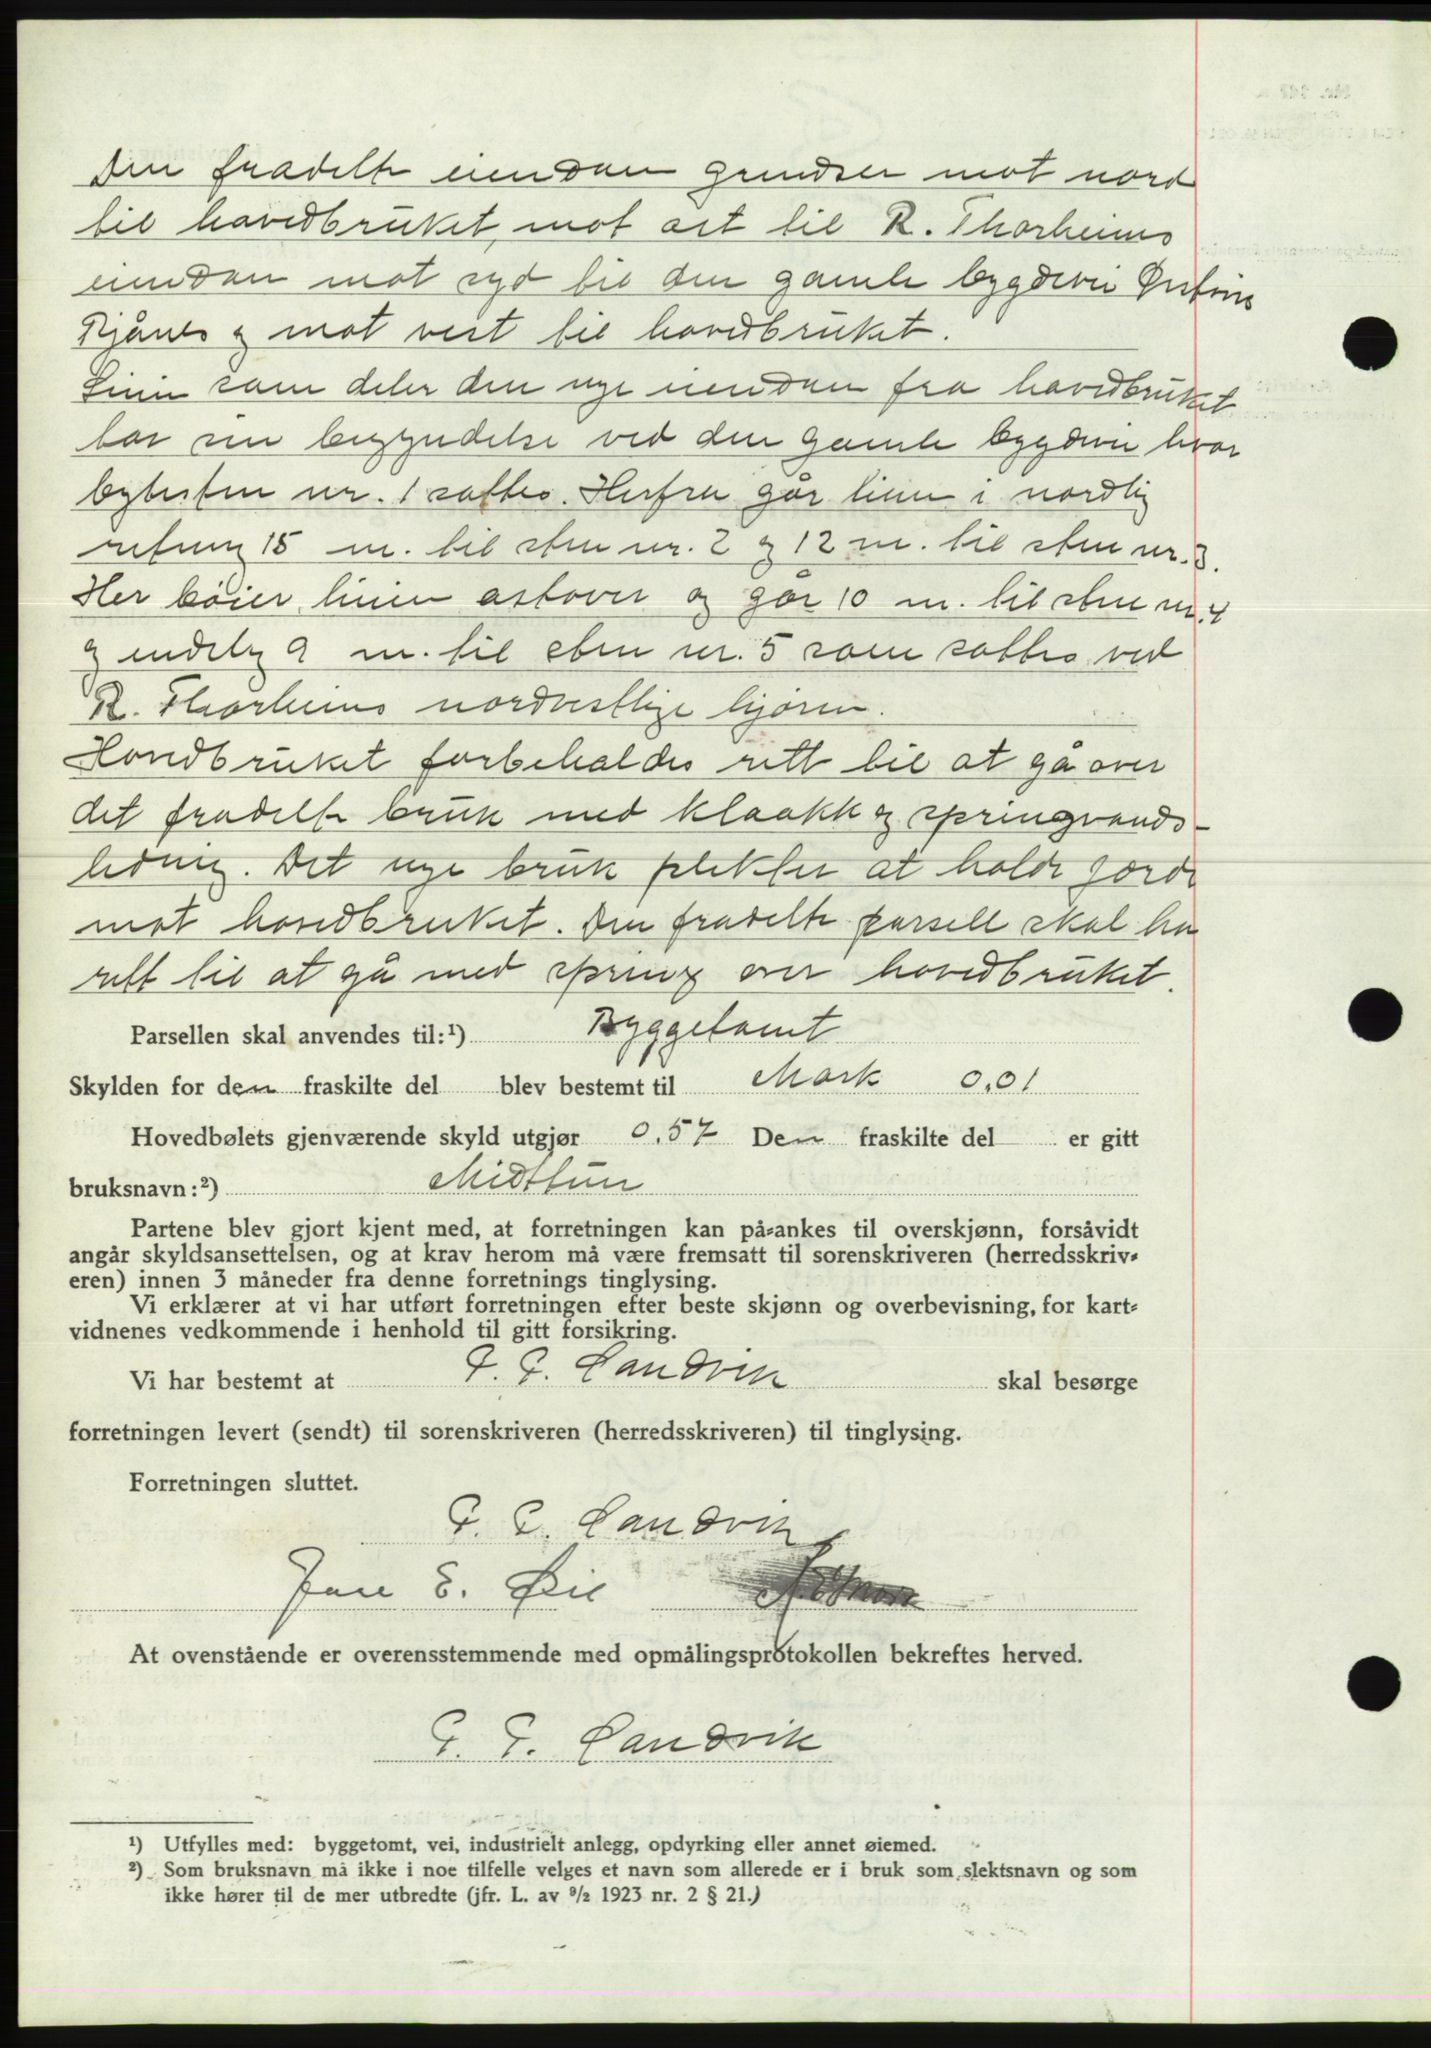 Den fradelte eiendom grendser mot nord
til hovedbruket, mot ost til R. Thorheims
eiendom mot syd til den gamle bygdevei
og mot vest til hovedbruket.
Linien som deler den nye eiendom fra hovedbruket
tar sin begyndelse ved den gamle bygdevei hvor
bytesten nr. 1 sattes. Herfra går linien i nordlig
retning 15 m. til sten nr. 2 og 12 m. til sten nr. 3.
Her bøier linien ostover og går 10 m. til sten nr. 4
og endelig 9 m. til sten nr. 5 som sattes ved
R. Thorheims nordvestlige hjørne.
Hovedbruket forbeholdes rett til at gå over
det fradelte bruk med kloakk og springvands-
ledning. Det nye bruk plikter at holde gjerde
mot hovedbruket. Den fradelte parsell skal ha
rett til at gå med spring over hovedbruket.
Parsellen skal anvendes til:¹) Byggetomt
Skylden for den fraskilte del blev bestemt til Mark 0,01
Hovedbølets gjenværende skyld utgjør 0,57 Den fraskilte del er gitt
bruksnavn:²) Midttun
Partene blev gjort kjent med, at forretningen kan på-ankes til overskjønn, forsåvidt
angår skyldsansettelsen, og at krav herom må være fremsatt til sorenskriveren (herredsskriv-
eren) innen 3 måneder fra denne forretnings tinglysing.
Vi erklærer at vi har utført forretningen efter beste skjønn og overbevisning, for kart-
vidnenes vedkommende i henhold til gitt forsikring.
Vi har bestemt at P. P. Sandvik skal besørge
forretningen levert (sendt) til sorenskriveren (herredsskriveren) til tinglysing.
Forretningen sluttet.
P. P. Sandvik
E. Øie
At ovenstående er overensstemmende med opmålingsprotokollen bekreftes herved.
P. P. Sandvik
¹) Utfylles med: byggetomt, vei, industrielt anlegg, opdyrking eller annet øiemed.
²) Som bruksnavn må ikke i noe tilfelle velges et navn som allerede er i bruk som slektsnavn og som
ikke hører til de mer utbredte (jfr. L. av ⁹/₂ 1923 nr. 2 § 21.)